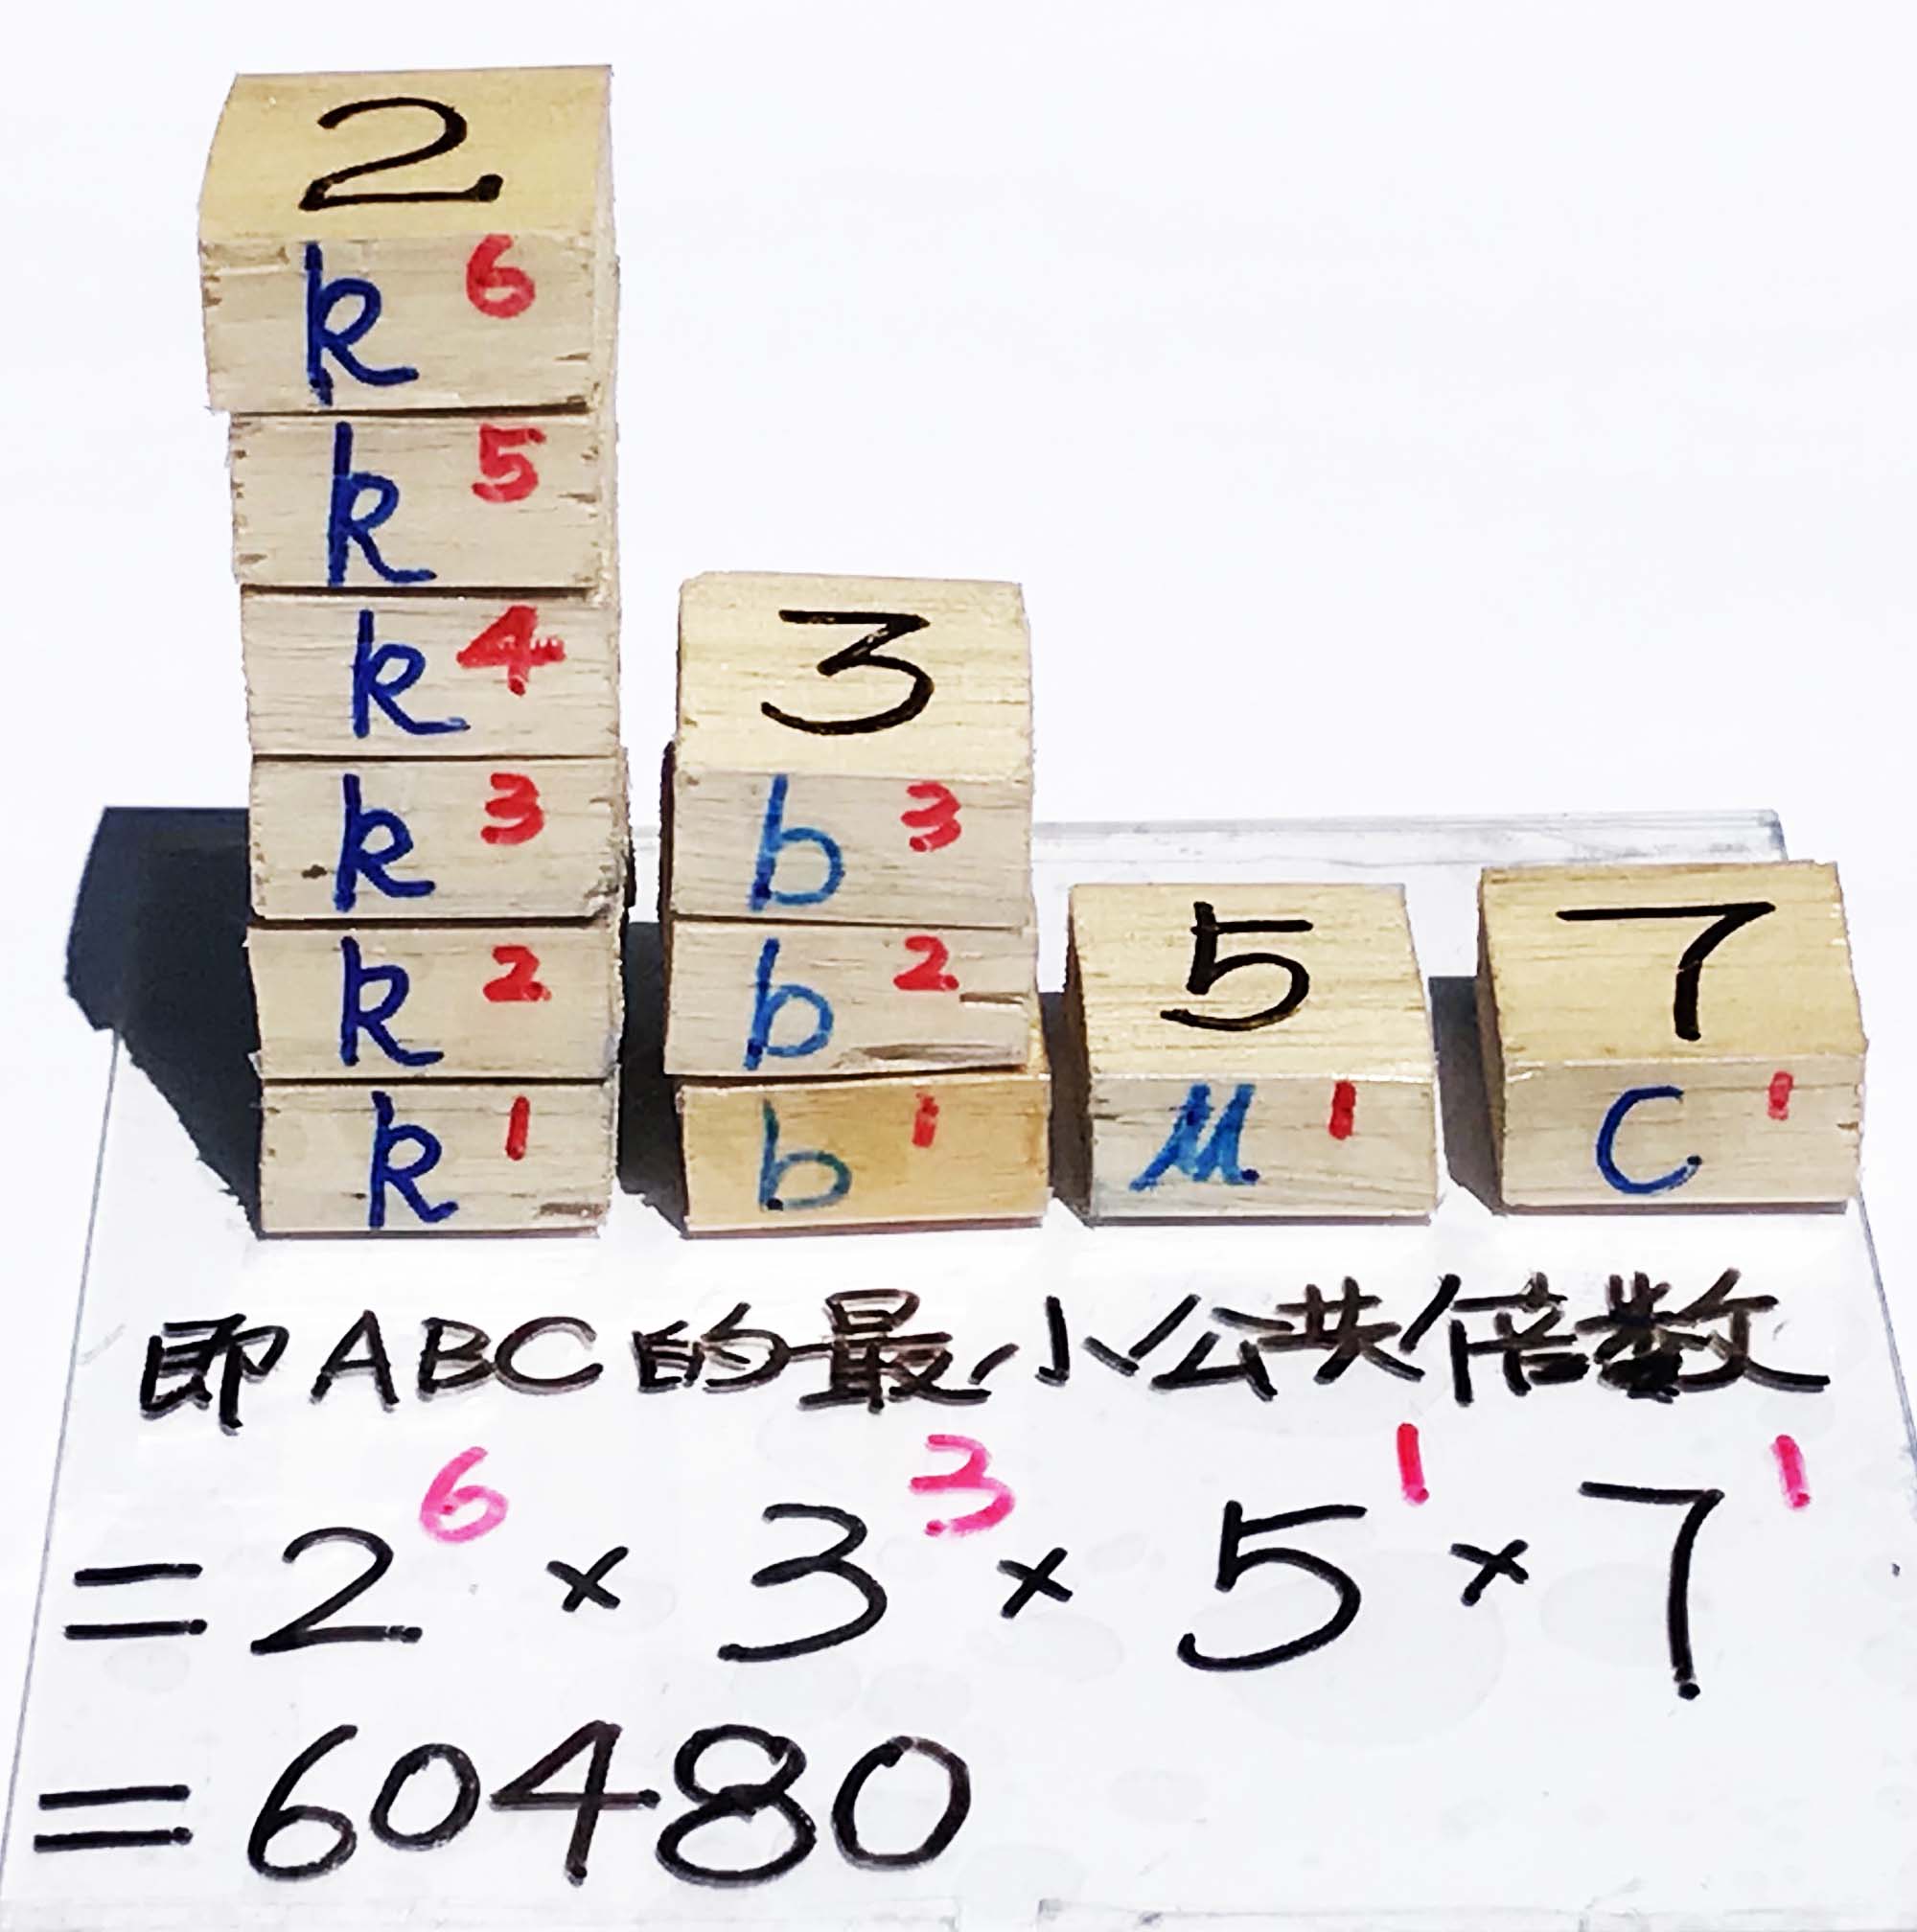 2
k⁶
k⁵
k⁴
k³
k²
k¹
3
b³
b²
b¹
5
м¹
7
c¹
即ABC的最小公共倍数
=2⁶×3³×5¹×7¹
=60480